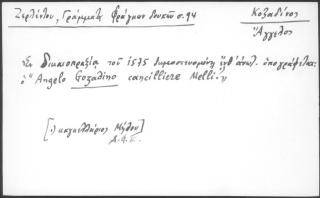 Ζερλέντου, Γράμματα Φράγκων Δουκῶν σ. 94
Κοζαδῖνος
Ἄγγελος
Ἐν δικαιοπραξίᾳ τοῦ 1575 δημοσιευομένῃ ὑπογράφεται:
ὁ "Angelo Gozadino cancilliere Melli."
[:) καγκελλάριος Μήλου]
Δ.Α.Ε.